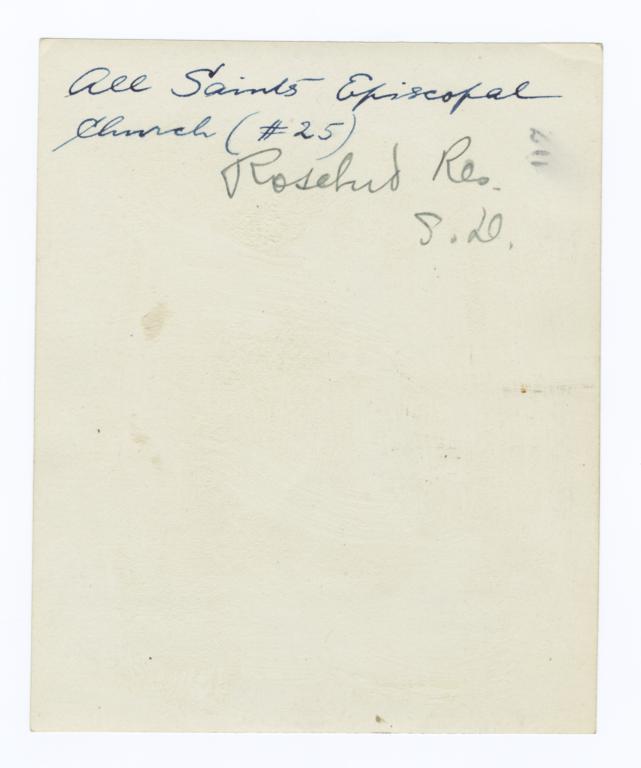 All Saints Episcopal
Church (#25)
Rosebud Res.
S.D.